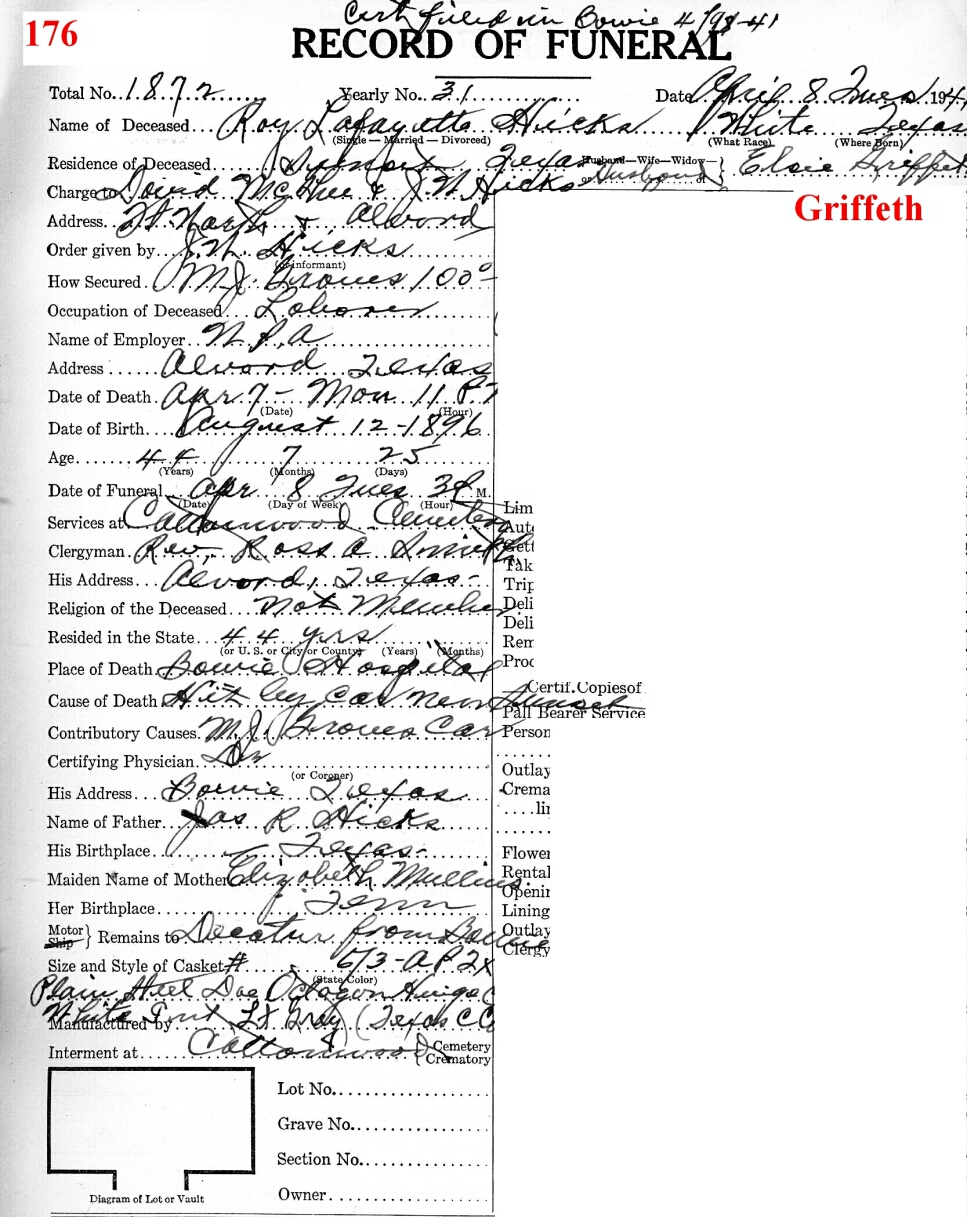 176
Cert filed in Bowie 4/98-41
RECORD OF FUNERAL
Total No. 1872 Yearly No. 31 Date April 8 Tues 194
Name of Deceased Roy Lafayette Hicks White Texas
(Single — Married — Divorced) (What Race) (Where Born)
Residence of Deceased Texas Husband—Wife—Widow— or of Husband Elsie Griffet
Charge to David McGhee & J. N. Hicks
Griffeth
Address Ft Worth & Alvord
Order given by J. N. Hicks
(or informant)
How Secured M J. Groves 100
Occupation of Deceased Laborer
Name of Employer W. P. A
Address Alvord Texas
Date of Death Apr 7 - Mon 11 P.
(Date) (Hour)
Date of Birth August 12-1896
Age 44 7 25
(Years) (Months) (Days)
Date of Funeral Apr 8 Tues 3 P M.
(Date) (Day of Week) (Hour)
Lim
Services at Cottonwood Cemetery
Auto
Clergyman Rev. Ross A. Smith
Gett
Tak
His Address Alvord, Texas-
Trip
Religion of the Deceased Not Member
Deli
Deli
Resided in the State 44 yrs
Rem
(or U. S. or City or County) (Years) (Months)
Place of Death Bowie Hospital
Proc
Certif. Copies of
Cause of Death Hit by car near Sunset
Pall Bearer Service
Contributory Causes M. J. Groves Car
Person
Certifying Physician Dr
Outlay
(or Coroner)
His Address Bowie Texas
Crema
lin
Name of Father Jas R Hicks
His Birthplace Texas-
Flower
Maiden Name of Mother Elizabeth Mullins
Rental
Openin
Her Birthplace Tenn
Lining
Motor Ship } Remains to Decatur from Bowie
Outlay
Clergy
Size and Style of Casket # 6/3-AP2X
(State Color)
Plain Steel Doe Octagon Hinge C
White Lt Gray (Texas C Co
Manufactured by
Interment at Cottonwood { Cemetery Crematory
Lot No.
Grave No.
Section No.
Owner
Diagram of Lot or Vault